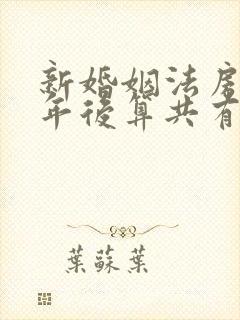 新婚姻法房
年後算共有
葉蘇葉